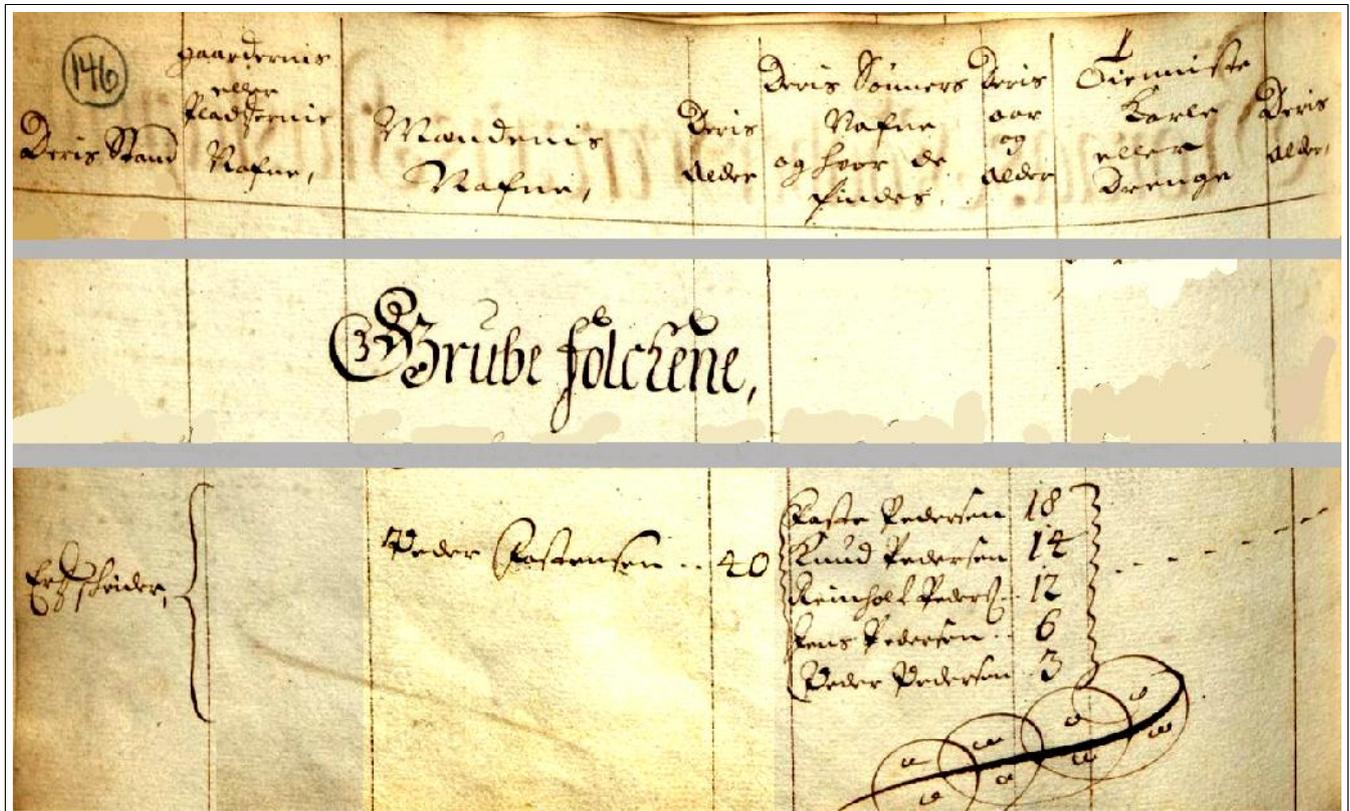 146
Deris Stand
gaardernis
eller
Pladzernis
Nafne,
Mandenis
Nafne,
Deris
alder
Deris Sønners
Nafne
og hvor de
findes.
Deris
aar
og
alder
Tienniste
Karle
eller
Drenge
Deris
alder,
Grube folckene,
Ertzscheider,
Peder Kastensen .. 40
Kaste Pedersen 18
Knud Pedersen 14
Reinholt Peders: 12
Jens Pedersen .. 6
Peder Pedersen 3